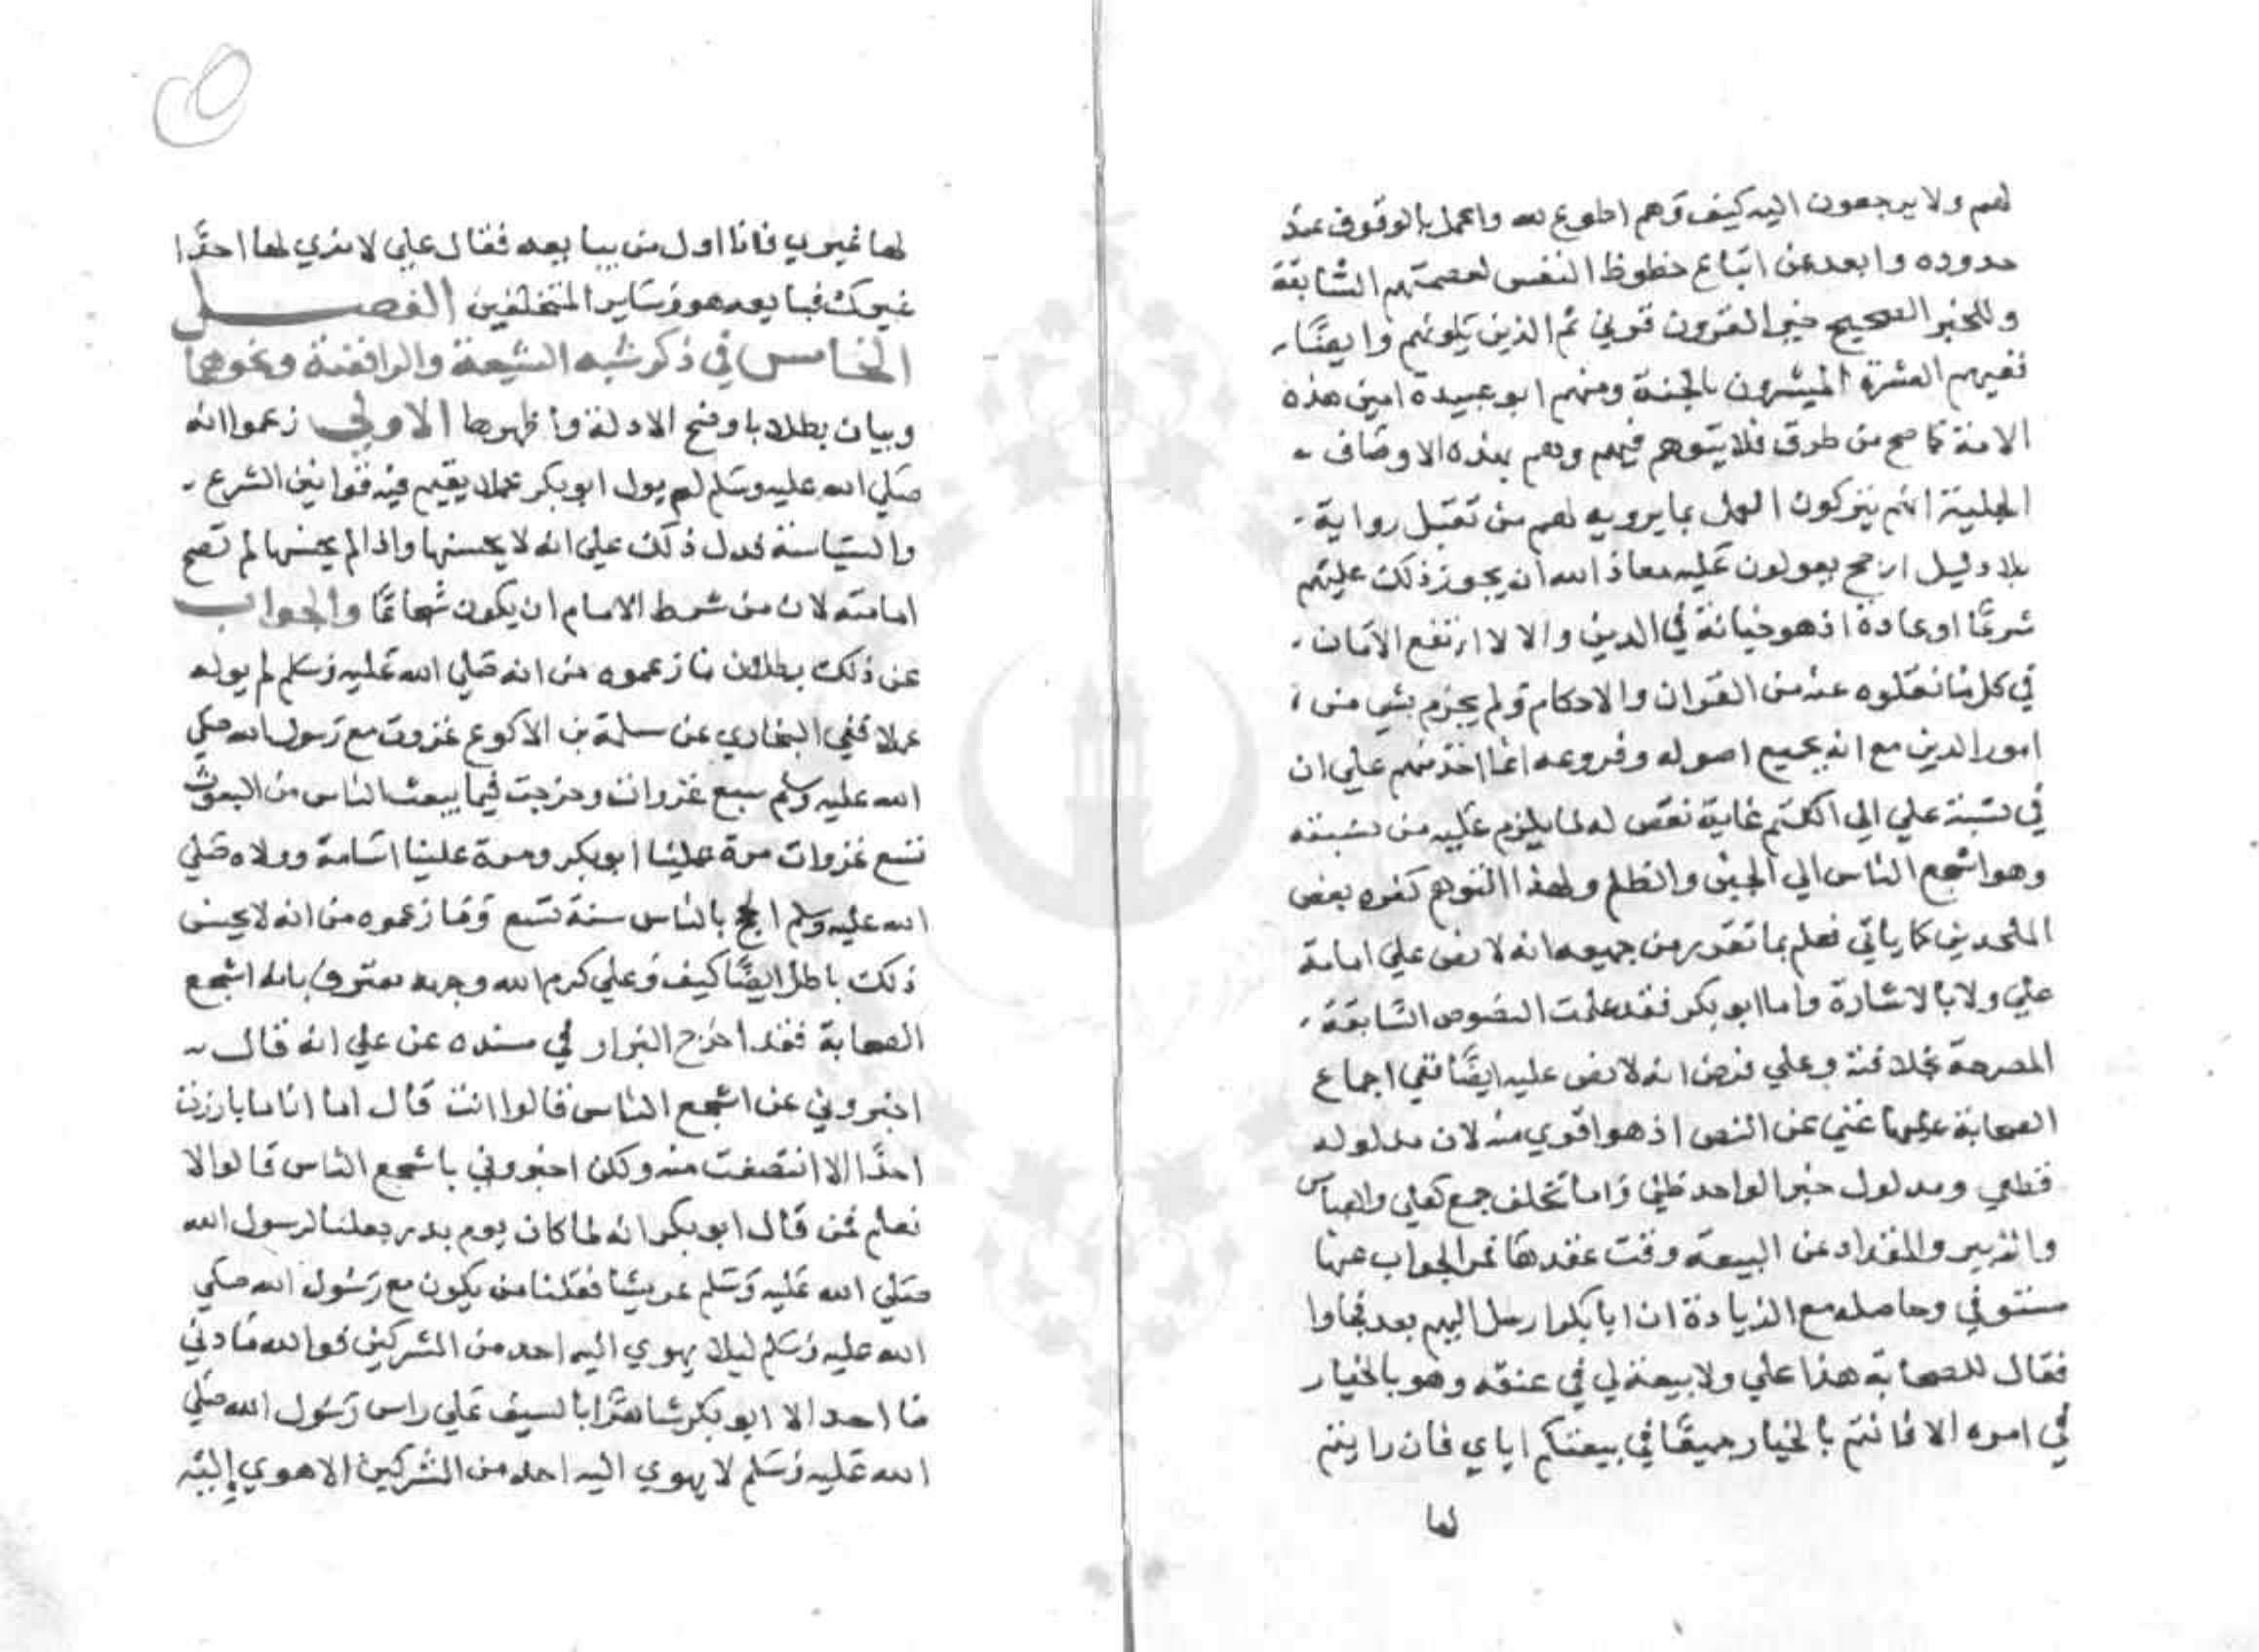 لهم ولا يرجعون اليه كيف وهم اطوع لله واعمل بالوقوف عند
حدوده وابعد عن اتباع حظوظ النفس لعصمتهم السابقة
وللخبر الصحيح خير القرون قرني ثم الذين يلونهم وايضًا
ففيهم العشرة المبشرون بالجنة ومنهم ابو عبيدة امين هذه
الامة كما صح من طرق فلا يتوهم فيهم وهم بهذه الاوصاف
الجلية انهم يتركون العمل بما يرويه لهم من تقبل رواية
بلا دليل ارجح يعولون عليه معاذ الله ان يجوز ذلك عليهم
شرعًا او عادة اذ هو خيانة في الدين والا لارتفع الامان
في كل ما نقلوه عنه من القران والاحكام ولم يجزم بشي من
امور الدين مع انه بجميع اصوله وفروعه انما اخذ منهم علي ان
في نسبة علي الي الكتم غاية نقص له لما يلزم عليه من نسبته
وهو اشجع الناس الي الجبن والظلم ولهذا التوهم كفره بعض
الملحدين كما ياتي فعلم بما تقرر من جميعه انه لا نص علي امامة
علي ولا بالاشارة واما ابو بكر فقد علمت النصوص السابقة
المصرحة بخلافته وعلي فرض انه لا نص عليه ايضًا ففي اجماع
الصحابة عليها غني عن النص اذ هو اقوي منه لان مدلوله
قطعي ومدلول خبر الواحد ظني واما تخلف جمع كعلي والعباس
والزبير والمقداد عن البيعة وقت عقدها فمر الجواب عنها
مستوفي وحاصله مع الزيادة ان ابا بكر ارسل اليهم بعد فجاوا
فقال للصحابة هذا علي ولا بيعة لي في عنقه وهو بالخيار
في امره الا فانتم بالخيار جميعًا في بيعتكم اياي فان رايتم
لها
لها غيري فانا اول من يبايعه فقال علي لا نري لها احدًا
غيرك فبايعه هو وساير المتخلفين الفصل
الخامس في ذكر شبه الشيعة والرافضة ونحوهما
وبيان بطلانها باوضح الادلة واظهرها الاولي زعموا انه
صلي الله عليه وسلم لم يول ابو بكر عملا يقيم فيه قوانين الشرع
والسياسة فدل ذلك علي انه لا يحسنها واذا لم يحسنها لم تصح
امامته لان من شرط الامام ان يكون شجاعًا والجواب
عن ذلك بطلان ما زعموه من انه صلي الله عليه وسلم لم يوله
عملا ففي البخاري عن سلمة بن الاكوع غزوت مع رسول الله صلي
الله عليه وسلم سبع غزوات وخرجت فيما يبعث الناس من البعوث
تسع غزوات مرة علينا ابو بكر ومرة علينا اسامة وولاه صلي
الله عليه وسلم الحج بالناس سنة تسع وما زعموه من انه لا يحسن
ذلك باطل ايضًا كيف وعلي كرم الله وجهه معترف بانه اشجع
الصحابة فقد اخرج البزار في مسنده عن علي انه قال
اخبروني عن اشجع الناس قالوا انت قال اما انا ما بارزت
احدًا الا انتصفت منه ولكن اخبروني باشجع الناس قالوا لا
نعلم فمن قال ابو بكر انه لما كان يوم بدر جعلنا لرسول الله
صلي الله عليه وسلم عريشا فقلنا من يكون مع رسول الله صلي
الله عليه وسلم ليلا يهوي اليه احد من المشركين فوالله ما دني
منا احد الا ابو بكر شاهرًا بالسيف علي راس رسول الله صلي
الله عليه وسلم لا يهوي اليه احد من المشركين الا هوي اليه